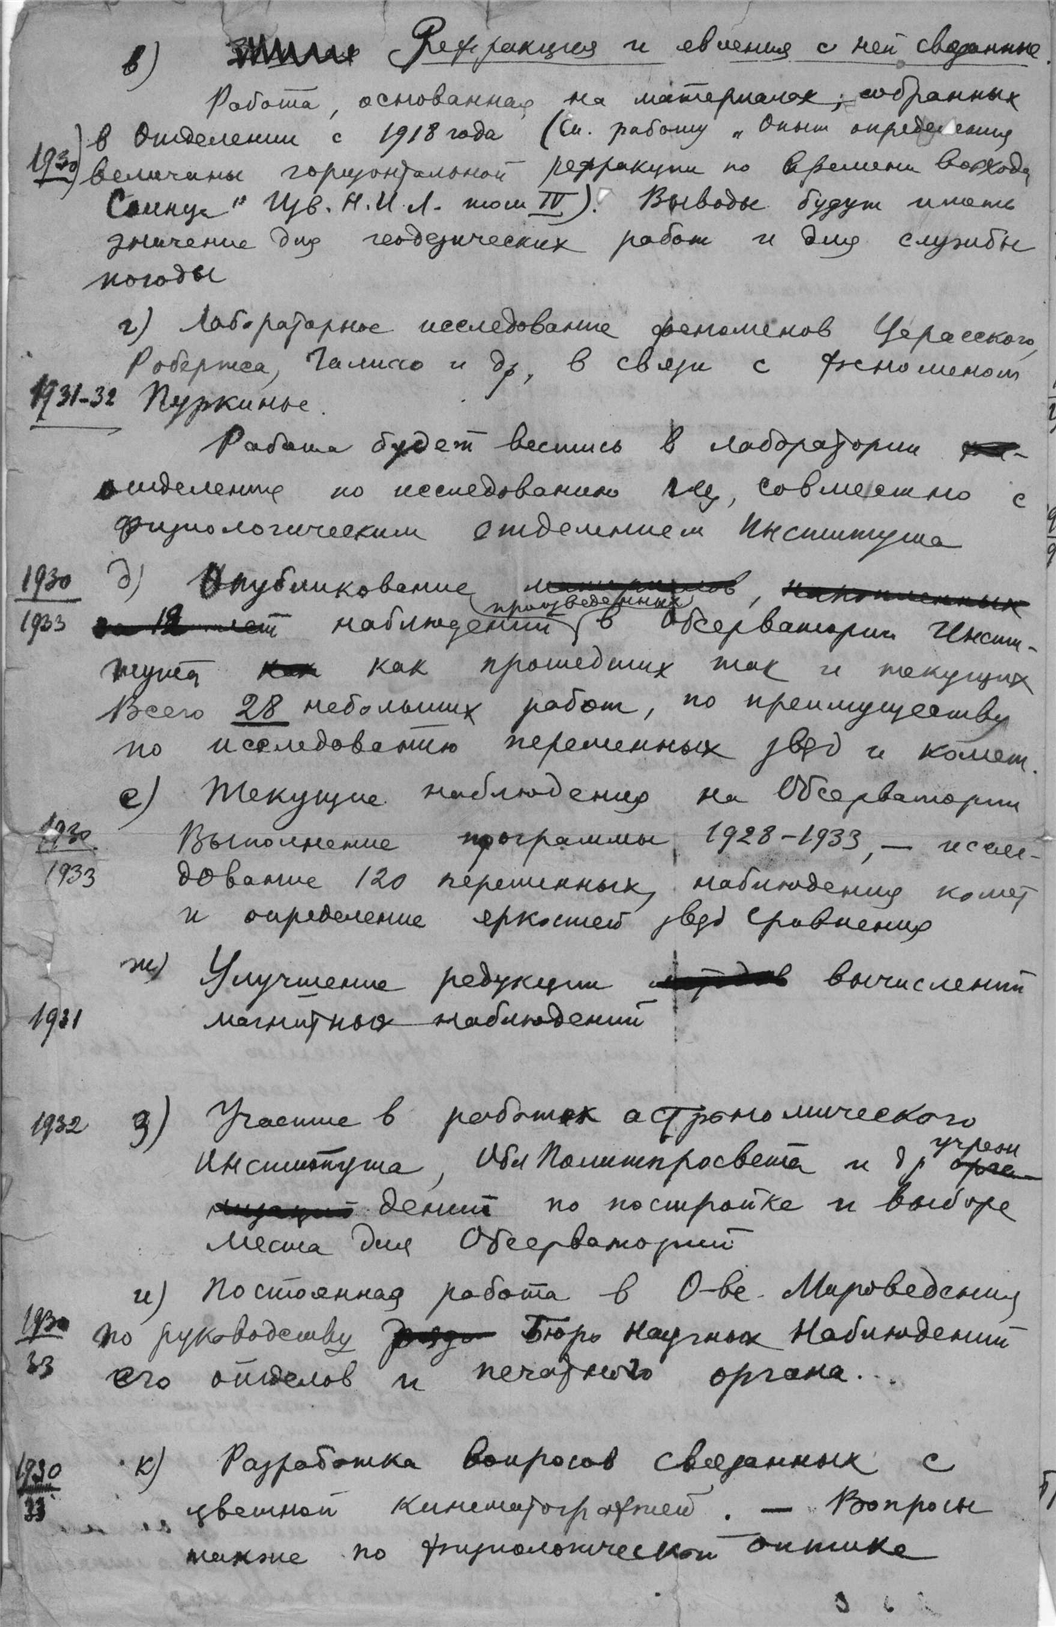 в) Рефракция и явления с ней связанные.
Работа, основанная на материалах, собранных
в Отделении с 1918 года (см. работу „Опыт определения
1930 величины горизонтальной рефракции по времени восхода
Солнца" Изв. Н.И.Л. том IV). Выводы будут иметь
значение для геодезических работ и для службы
погоды
г) Лабораторное исследование феноменов Церасского,
Робертса, и др, в связи с феноменом
1931-32 Пуркинье.
Работа будет вестись в лаборатории
отделения по исследованию совместно с
физиологическим отделением Института
1930 д) Опубликование материалов, накопленных
1933 за 12 лет наблюдений (произведенных) в Обсерватории Инсти-
тута как как прошедших так и текущих
Всего 28 небольших работ, по преимуществу
по исследованию переменных звезд и комет.
е) Текущие наблюдения на Обсерватории
1930 Выполнение программы 1928-1933, — иссле-
1933 дование 120 переменных, наблюдения комет
и определение яркостей звезд сравнения
ж) Улучшение редукции методов вычислений
1931 магнитных наблюдений
1932 з) Участие в работах астрономического
Института, ОблПолитпросвета и др учреж
дений по постройке и выборе
места для Обсерваторий
и) Постоянная работа в О-ве Мироведения
1930 по руководству Бюро Научных Наблюдений
33 его отделов и печатного органа...
1930 к) Разработка вопросов связанных с
33 цветной кинематографией. — Вопросы
также по физиологической оптике